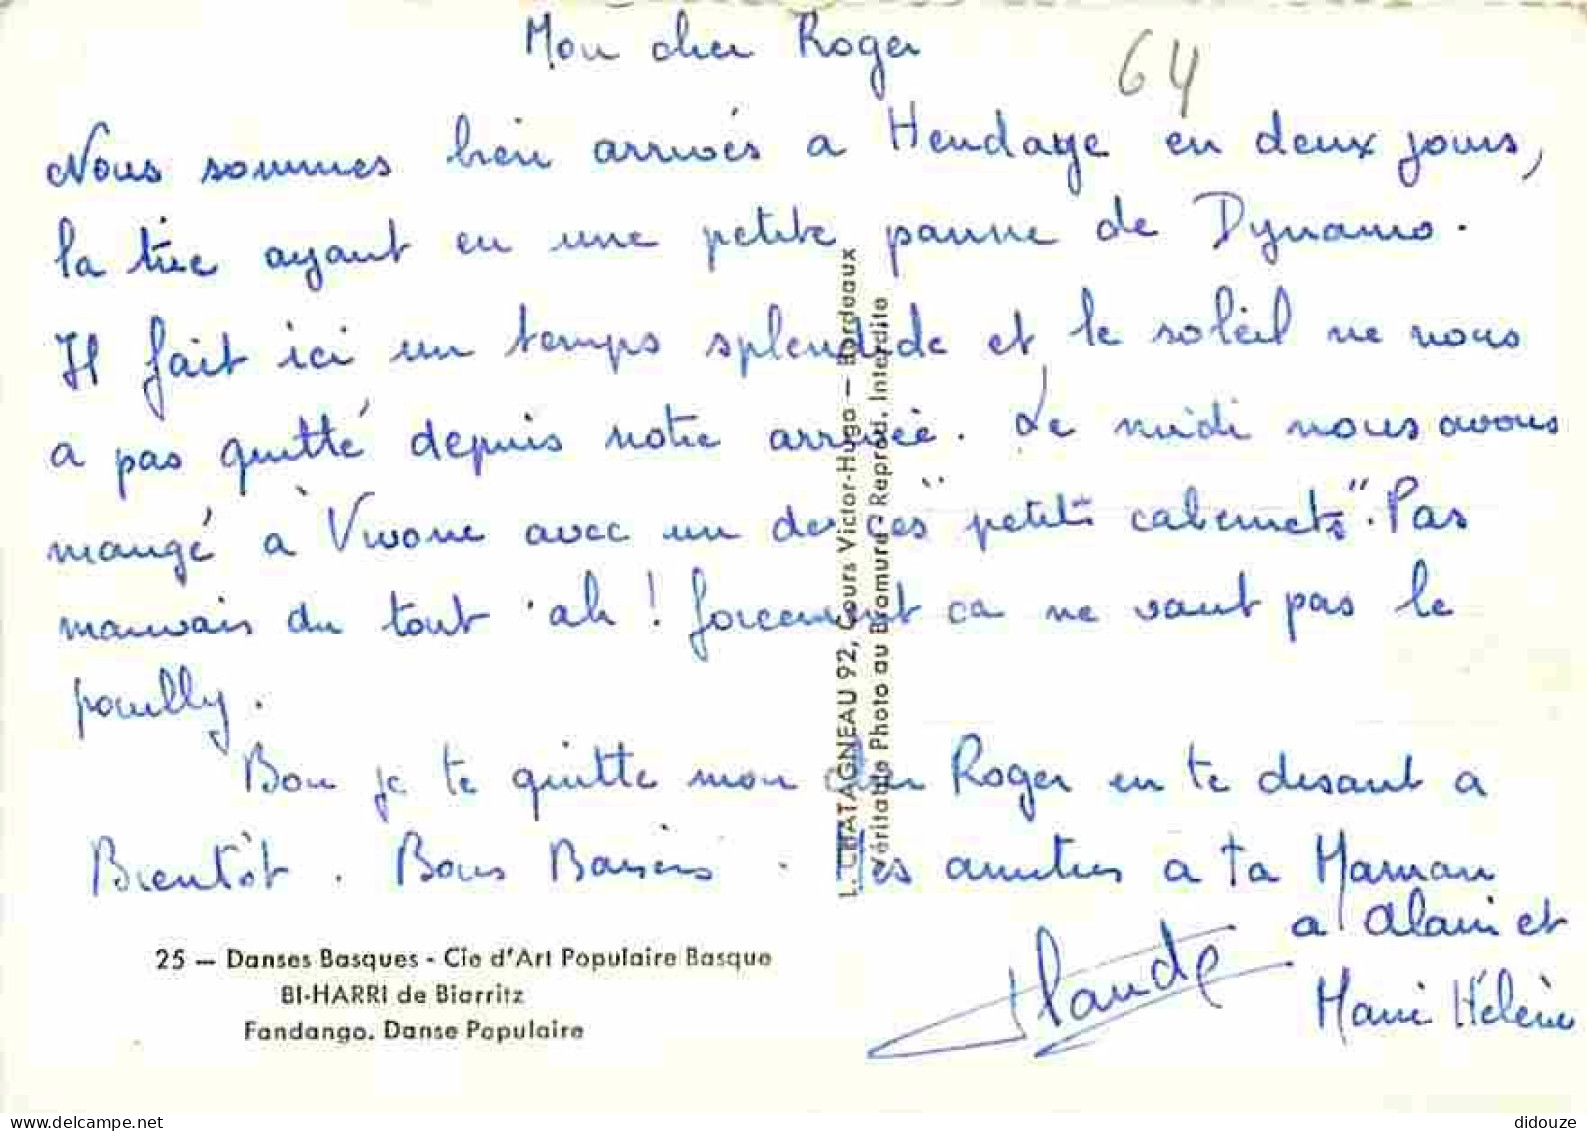 Mon cher Roger
64
Nous sommes bien arrivés a Hendaye en deux jours,
la ayant eu une petite panne de Dynamo.
Il fait ici un temps splendide et le soleil ne nous
a pas quitté depuis notre arrivée. Le midi nous avons
mangé à Vivone avec un de ces "petits cabernets". Pas
mauvais du tout ah ! forcement ca ne vaut pas le
pouilly.
Bon je te quitte mon cher Roger en te disant a
Bientôt. Bons Baisers. Mes amities a ta Maman
a Alain et
Marie Hélène
Claude
L. CHATAGNEAU 92, Cours Victor-Hugo — Bordeaux
Véritable Photo au Bromure - Reprod. Interdite
25 — Danses Basques - Cie d'Art Populaire Basque
BI-HARRI de Biarritz
Fandango. Danse Populaire
delcampe.net
didouze